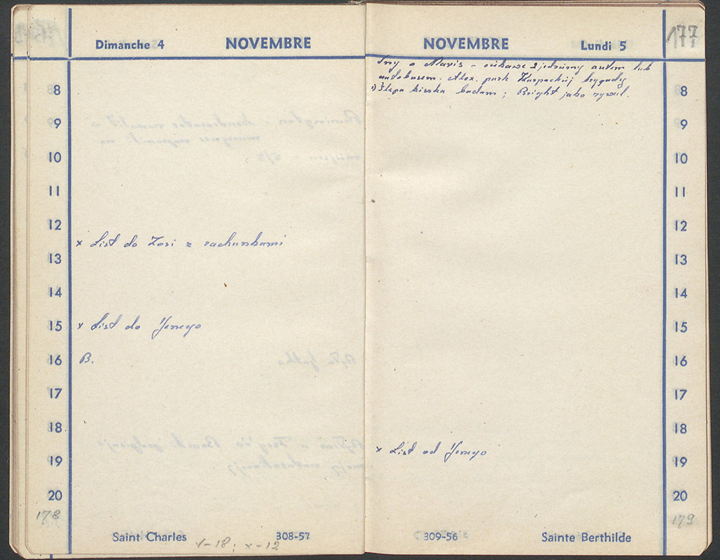 Dimanche 4 NOVEMBRE
8
9
10
11
12
x List do Zosi z rachunkami
13
14
x List do Jerzego
15
16 B.
17
18
19
20
178
Saint Charles 308-57
V-18; V-12
NOVEMBRE Lundi 5
177
Sny o Marii - ciekawe jedziemy autem lub
autobusem. Alex. park Karpackiej brygady
Ślepa kiszka badam; Bright jako rywal.
8
9
10
11
12
13
14
15
16
17
18
x List od Jerzego
19
20
179
309-56 Sainte Berthilde